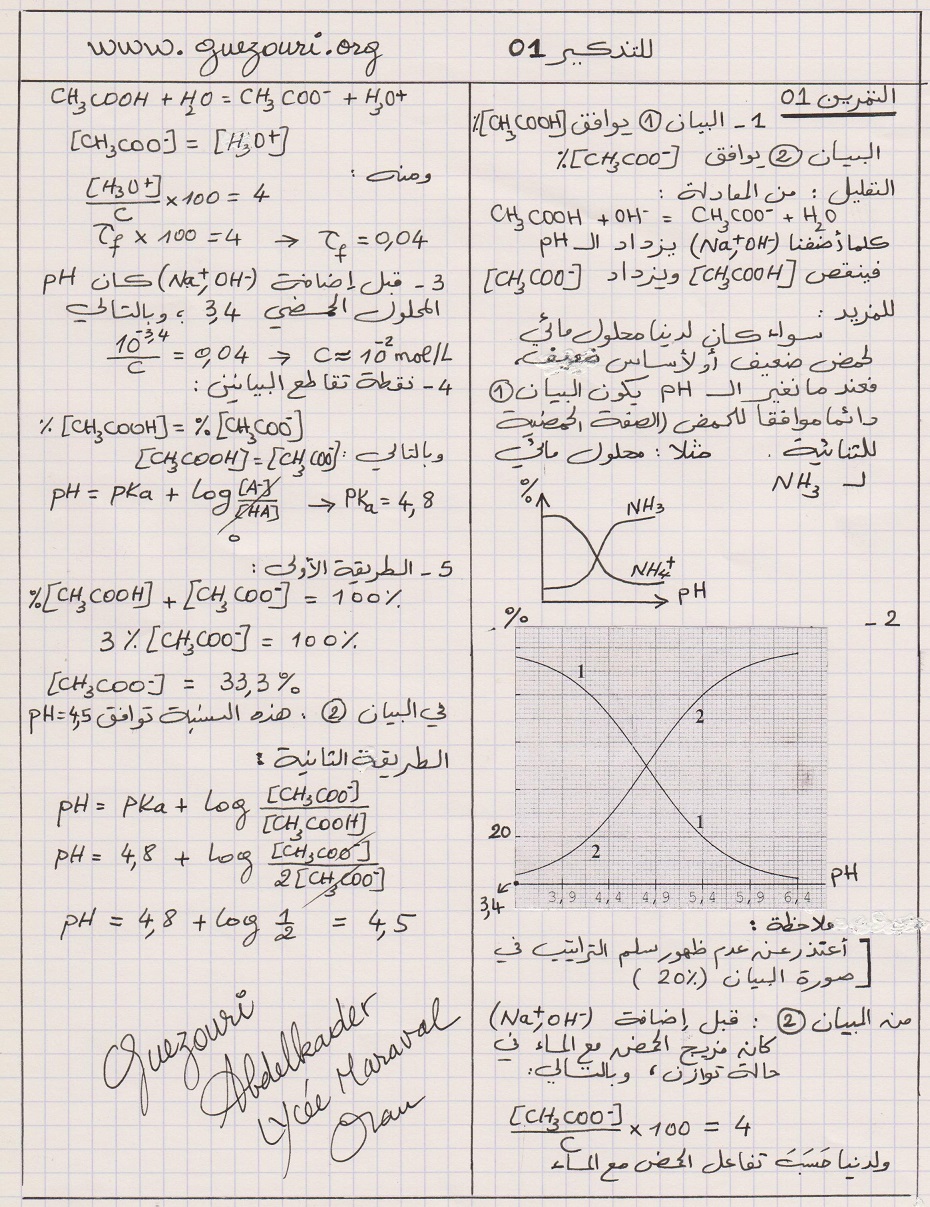 للتذكير 01
www.guezouri.org
التمرين 01
1 - البيان ① يوافق [CH₃COOH]%
البيان ② يوافق [CH₃COO⁻]%
التعليل : من المعادلة :
CH₃COOH + OH⁻ = CH₃COO⁻ + H₂O
كلما أضفنا (Na⁺,OH⁻) يزداد الـ pH
فينقص [CH₃COOH] ويزداد [CH₃COO⁻]
للمزيد :
سواء كان لدينا محلول مائي
لحمض ضعيف أو لأساس ضعيف،
فعند ما نغير الـ pH يكون البيان ①
دائما موافقا للحمض (الصفة الحمضية
للثنائية . مثلا : محلول مائي
لـ NH₃
%
NH₃
NH₄⁺
pH
2 -
%
1
2
20
2
1
pH
3,4
3,9 4,4 4,9 5,4 5,9 6,4
ملاحظة :
[أعتذر عن عدم ظهور سلم التراتيب في
صورة البيان (20%)]
من البيان ② : قبل إضافة (Na⁺,OH⁻)
كان مزيج الحمض مع الماء في
حالة توازن ، وبالتالي :
[CH₃COO⁻]/C × 100 = 4
ولدينا حَسَبَ تفاعل الحمض مع الماء
CH₃COOH + H₂O = CH₃COO⁻ + H₃O⁺
[CH₃COO⁻] = [H₃O⁺]
ومنه :
[H₃O⁺]/C × 100 = 4
τf × 100 = 4 → τf = 0,04
3 - قبل إضافة (Na⁺,OH⁻) كان pH
المحلول الحمضي 3,4 ، وبالتالي
10⁻³,⁴/C = 0,04 → C ≈ 10⁻² mol/L
4 - نقطة تقاطع البيانين :
% [CH₃COOH] = % [CH₃COO⁻]
وبالتالي : [CH₃COOH] = [CH₃COO⁻]
pH = PKa + log [A⁻]/[HA] → PKa = 4,8
0
5 - الطريقة الأولى :
%[CH₃COOH] + [CH₃COO⁻] = 100%
3 % [CH₃COO⁻] = 100%
[CH₃COO⁻] = 33,3%
في البيان ② ، هذه النسبة توافق pH = 4,5
الطريقة الثانية :
pH = PKa + log [CH₃COO⁻]/[CH₃COOH]
pH = 4,8 + log [CH₃COO⁻]/2[CH₃COO⁻]
pH = 4,8 + log 1/2 = 4,5
Guezouri
Abdelkader
Lycée Maraval
Oran